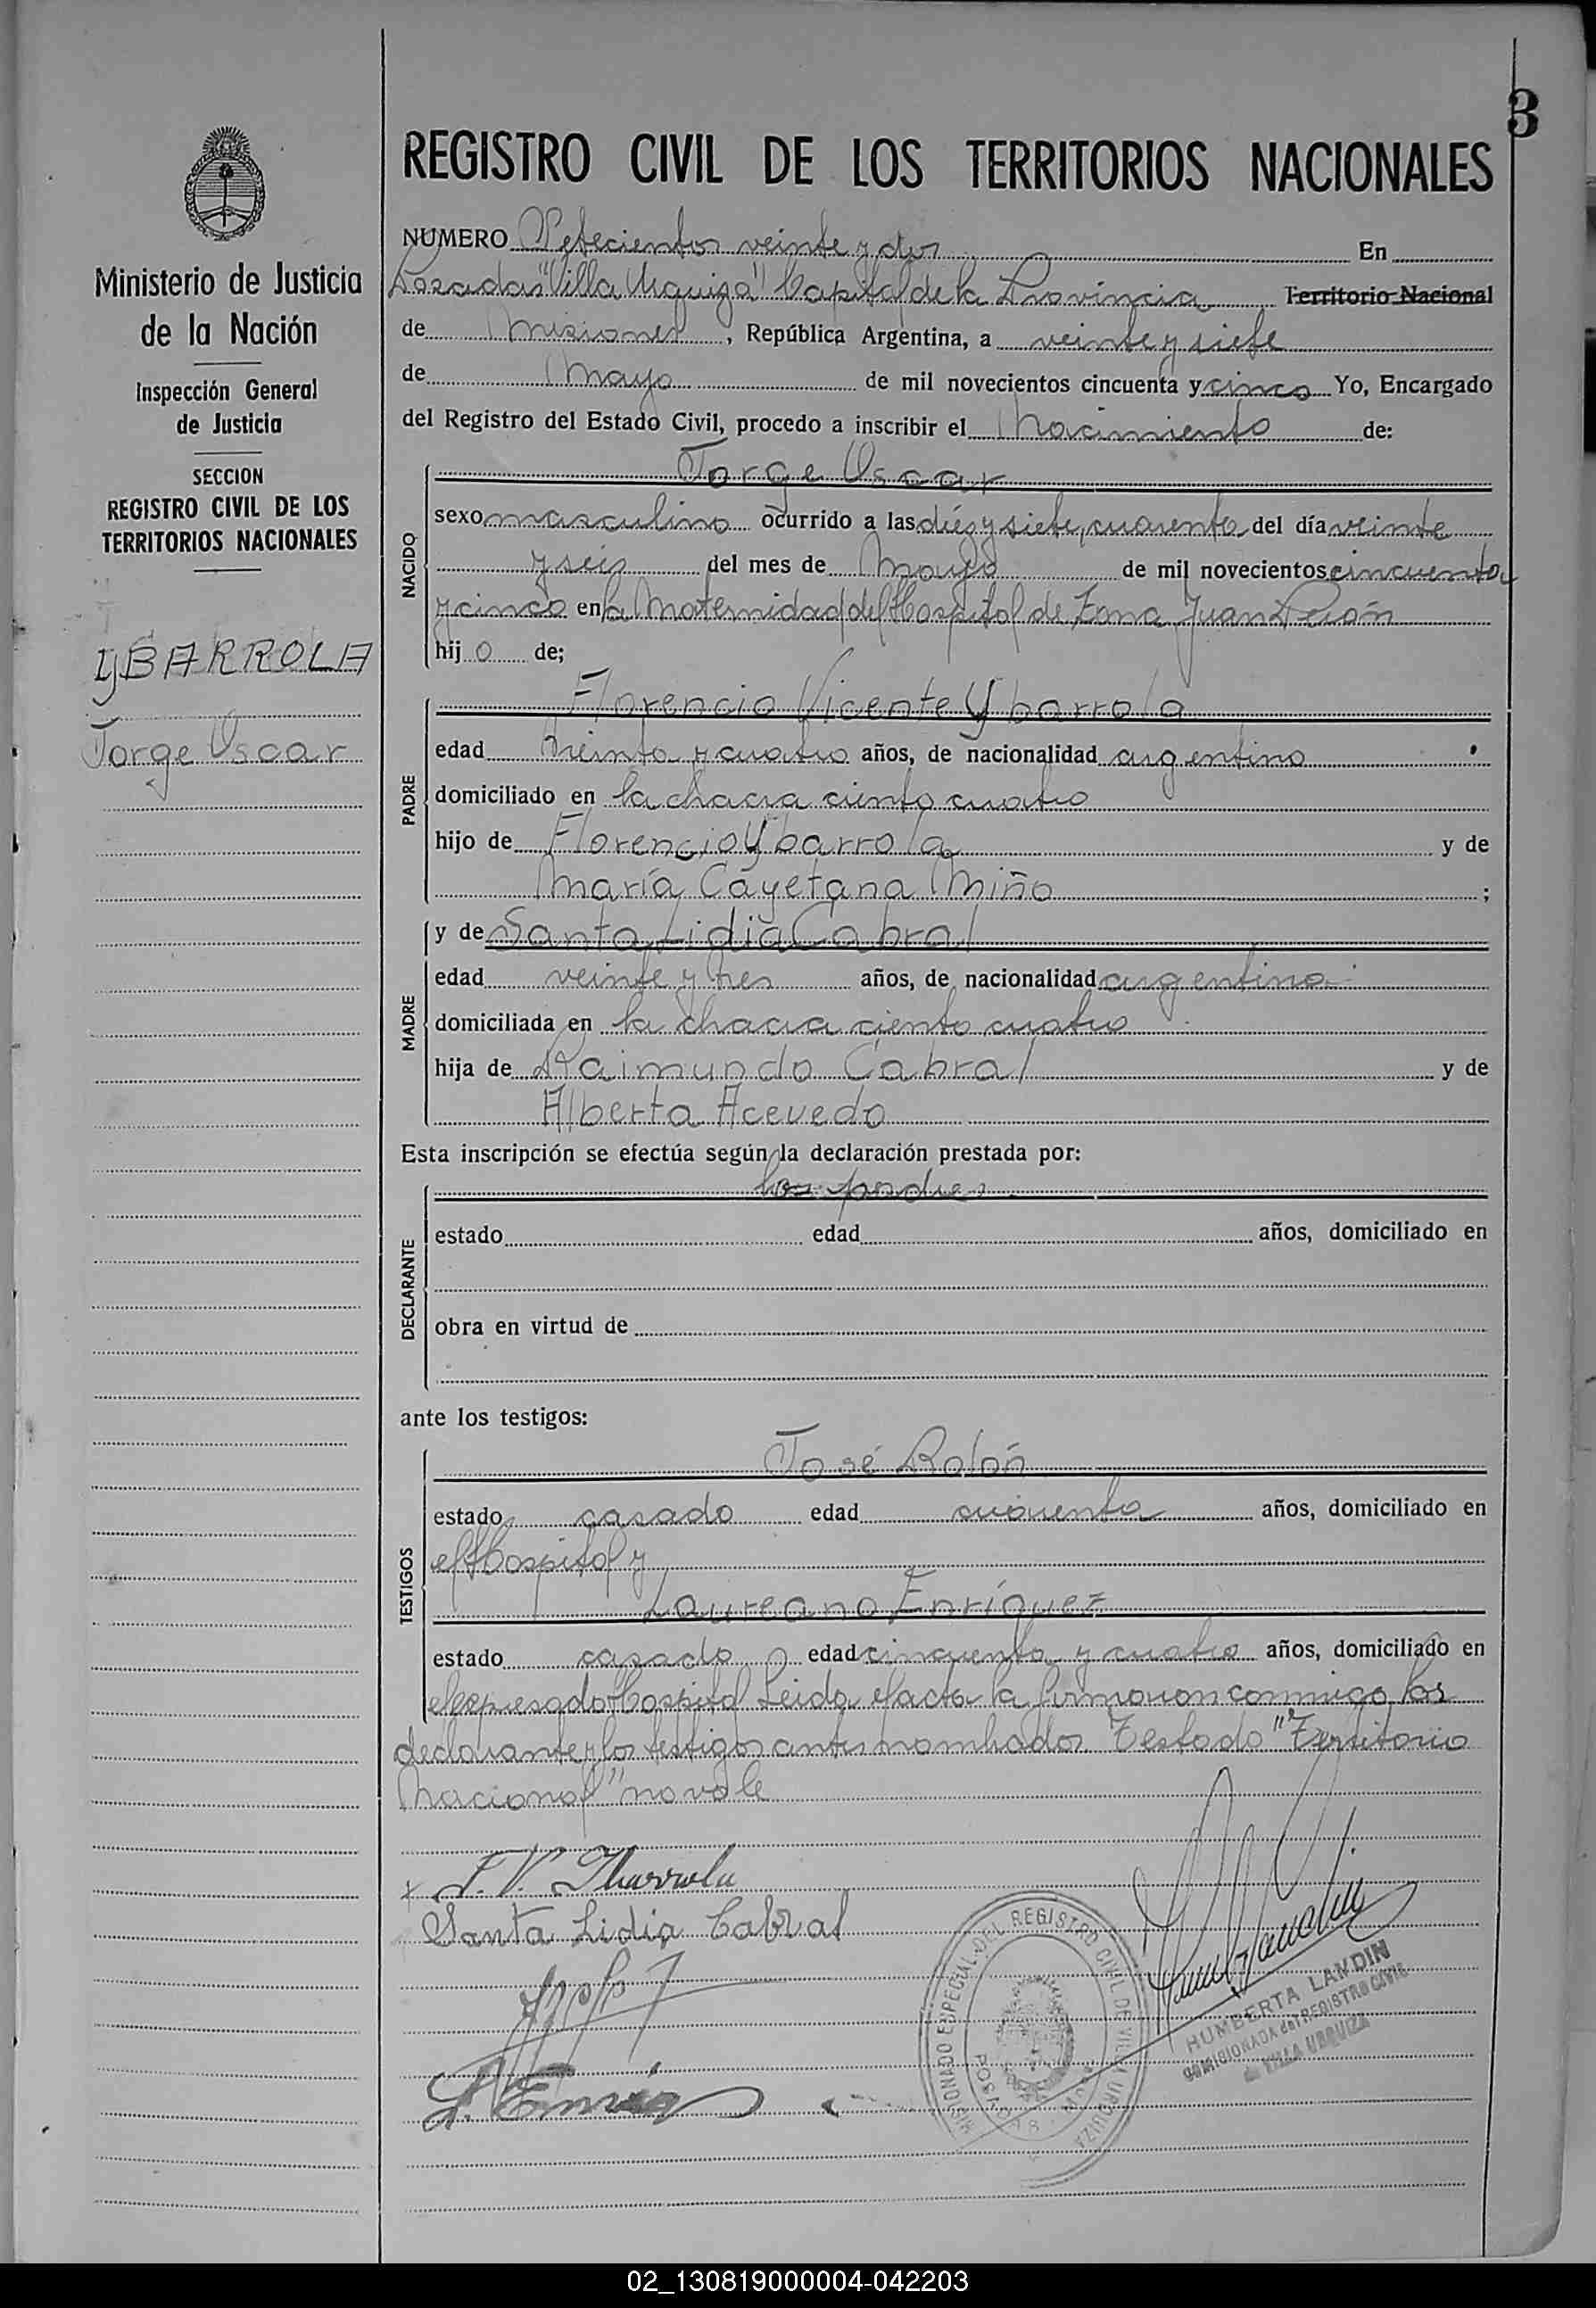 3
REGISTRO CIVIL DE LOS TERRITORIOS NACIONALES
Ministerio de Justicia
de la Nación
Inspección General
de Justicia
SECCION
REGISTRO CIVIL DE LOS
TERRITORIOS NACIONALES
YBARROLA
Jorge Oscar
NUMERO Setecientos veinte y dos En
Posadas "Villa Urquiza" Capital de la Provincia Territorio Nacional
de Misiones, República Argentina, a veinte y siete
de Mayo de mil novecientos cincuenta y cinco Yo, Encargado
del Registro del Estado Civil, procedo a inscribir el Nacimiento de:
NACIDO
Jorge Oscar
sexo masculino ocurrido a las diez y siete, cuarenta del día veinte
y seis del mes de Mayo de mil novecientos cincuenta
y cinco en la Maternidad del Hospital de Zona Juan Perón
hijo de;
PADRE
Florencio Vicente Ybarrola
edad treinta y cuatro años, de nacionalidad argentino
domiciliado en la chacra ciento cuatro
hijo de Florencio Ybarrola y de
María Cayetana Miño ;
MADRE
y de Santa Lidia Cabral
edad veinte y tres años, de nacionalidad argentina
domiciliada en la chacra ciento cuatro
hija de Raimundo Cabral y de
Alberta Acevedo
Esta inscripción se efectúa según la declaración prestada por:
DECLARANTE
los padres
estado edad años, domiciliado en
obra en virtud de
ante los testigos:
TESTIGOS
José Rolón
estado casado edad cuarenta años, domiciliado en
el Hospital y
Laureano Enríquez
estado casado edad cincuenta y cuatro años, domiciliado en
el expresado Hospital Leida el acta la firmaron conmigo los
declarantes y los testigos antes nombrados. Testado "Territorio
Nacional" no vale
F. V. Ibarrola
Santa Lidia Cabral
COMISIONADO ESPECIAL DEL REGISTRO CIVIL DE VILLA URQUIZA
POSADAS
HUMBERTA LANDIN
COMISIONADA del REGISTRO CIVIL
de VILLA URQUIZA
02_130819000004-042203